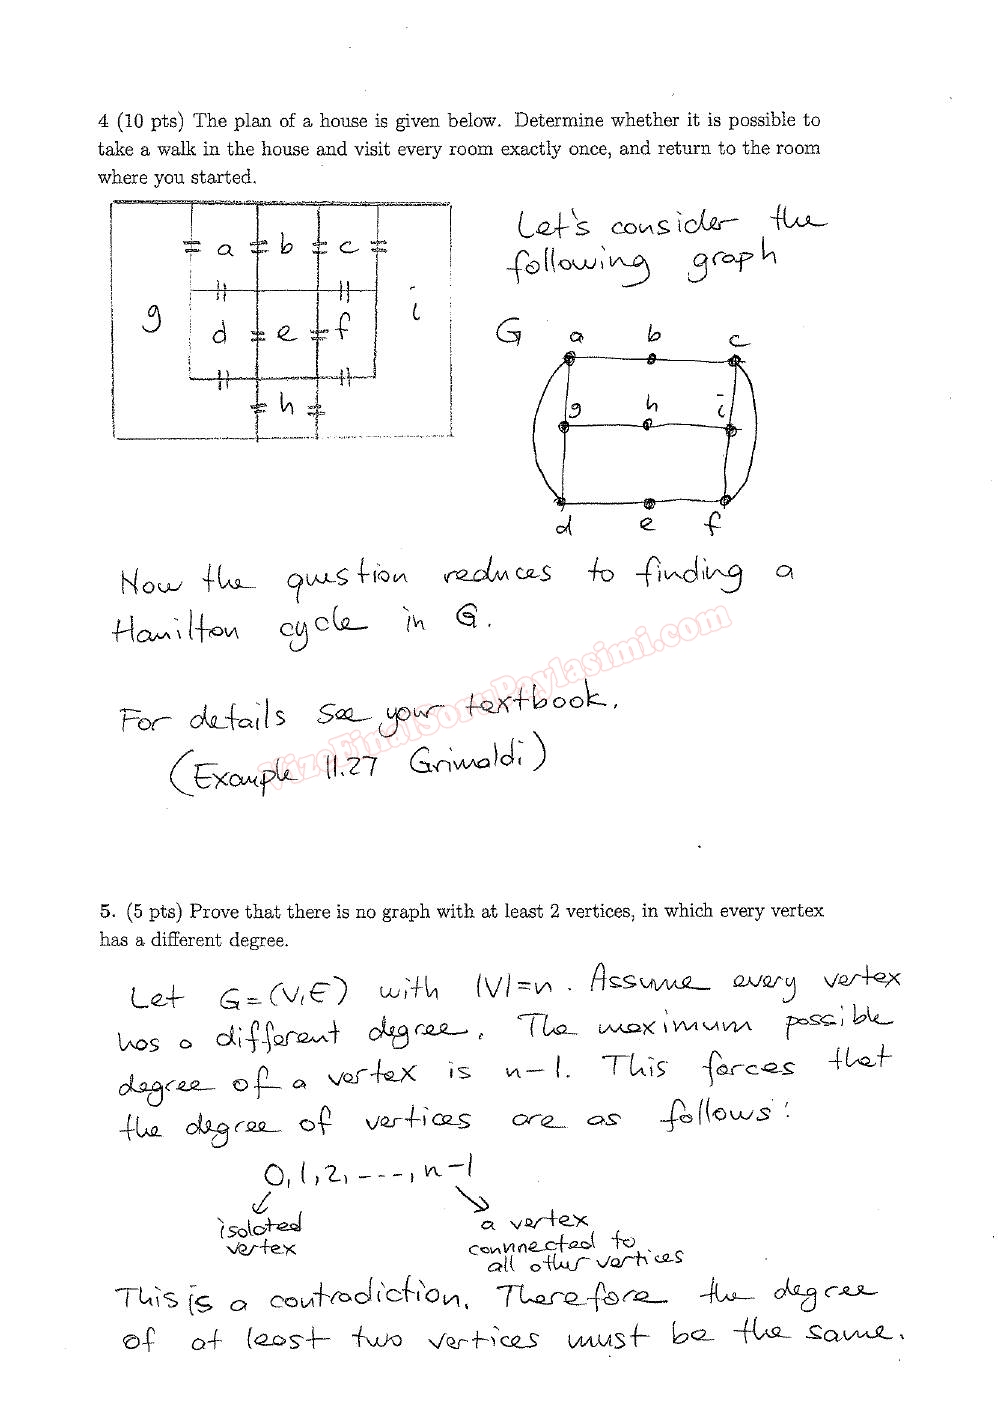 4 (10 pts) The plan of a house is given below. Determine whether it is possible to
take a walk in the house and visit every room exactly once, and return to the room
where you started.
a b c
g d e f i
h
Let's consider the
following graph
G a b c
g h i
d e f
Now the question reduces to finding a
Hamilton cycle in G.
For details see your textbook.
(Example 11.27 Grimaldi)
VizeFinalSoruPaylasimi.com
5. (5 pts) Prove that there is no graph with at least 2 vertices, in which every vertex
has a different degree.
Let G=(V,E) with |V|=n. Assume every vertex
has a different degree. The maximum possible
degree of a vertex is n-1. This forces that
the degree of vertices are as follows:
0,1,2,----,n-1
isolated
vertex
a vertex
connnected to
all other vertices
This is a contradiction. Therefore the degree
of at least two vertices must be the same.